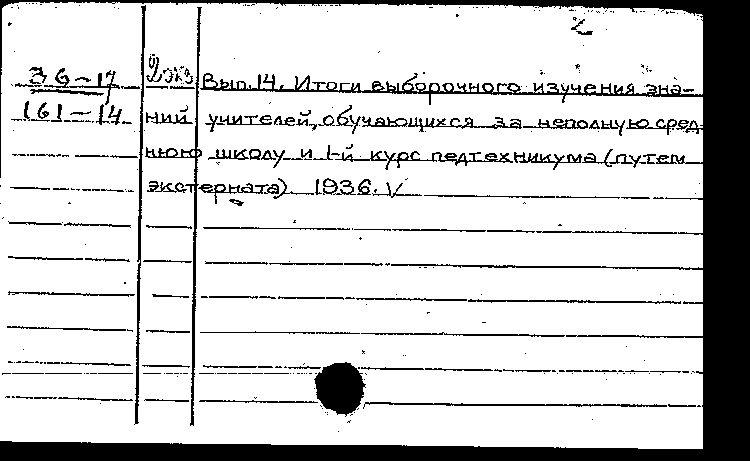 2
36-17 2экз Вып.14. Итоги выборочного изучения зна-
161-14 ний учителей, обучающихся за неполную сред-
нюю школу и 1-й курс педтехникума (путем
экстерната). 1936. V